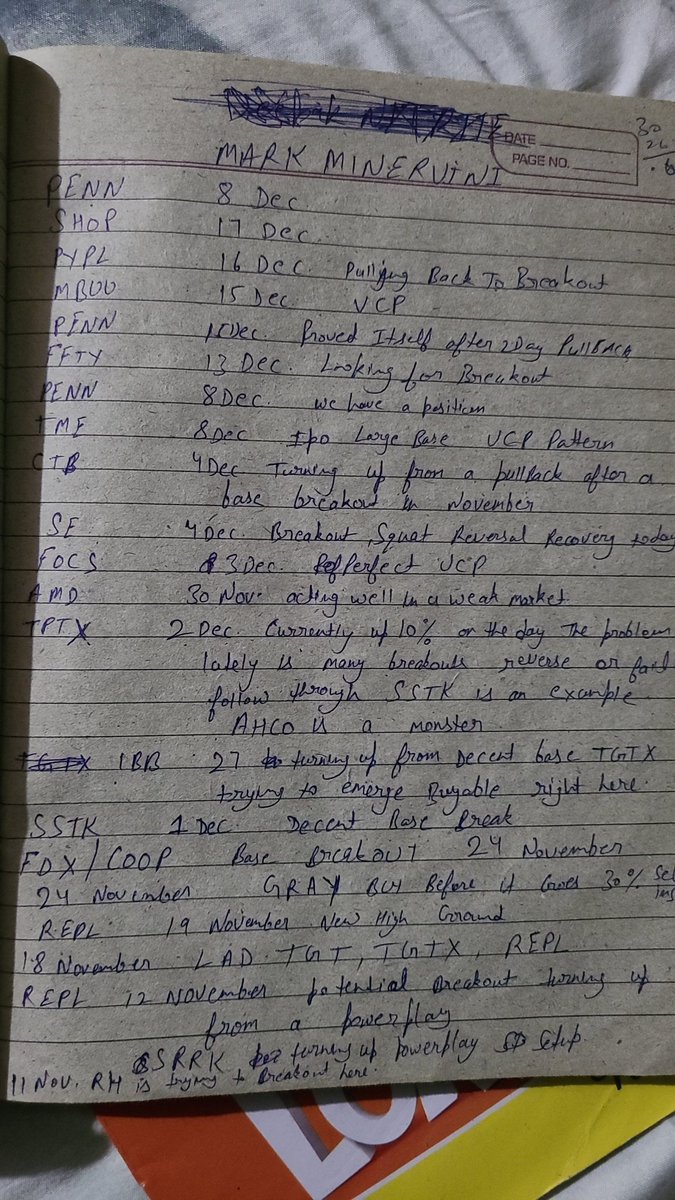 30
DATE
PAGE NO.
MARK MINERVINI
PENN 8 Dec
SHOP 17 Dec.
PYPL 16 Dec. Pulling Back To Breakout
MBUU 15 Dec VCP
PENN Dec. Proved Itself after 2Day PullBACK
FFTY 13 Dec. Looking for Breakout
PENN 8 Dec. we have a position
TME 8 Dec Ipo Large Base VCP Pattern
CTB 4 Dec Turning up from a pullback after a
base breakout in November
SE 4 Dec. Breakout Squat Reversal Recovery today
FOCS 3 Dec. Perfect VCP
AMD 30 Nov. acting well in a weak market
TPTX 2 Dec. Currently up 10% on the day The problem
lately is many breakouts reverse or fail
follow through SSTK is an example.
AHCO is a monster
IBB 27 turning up from Decent base TGTX
trying to emerge Buyable right here.
SSTK 1 Dec. Decent Base Break
FDX/COOP Base Breakout 24 November
24 November GRAY BUY Before it Goes 30%
REPL 19 November New High Ground
18 November LAD TGT, TGTX, REPL
REPL 12 November potential Breakout turning up
from a powerplay
SRRK turning up powerplay Setup.
11 Nov. RH is trying to Breakout here.